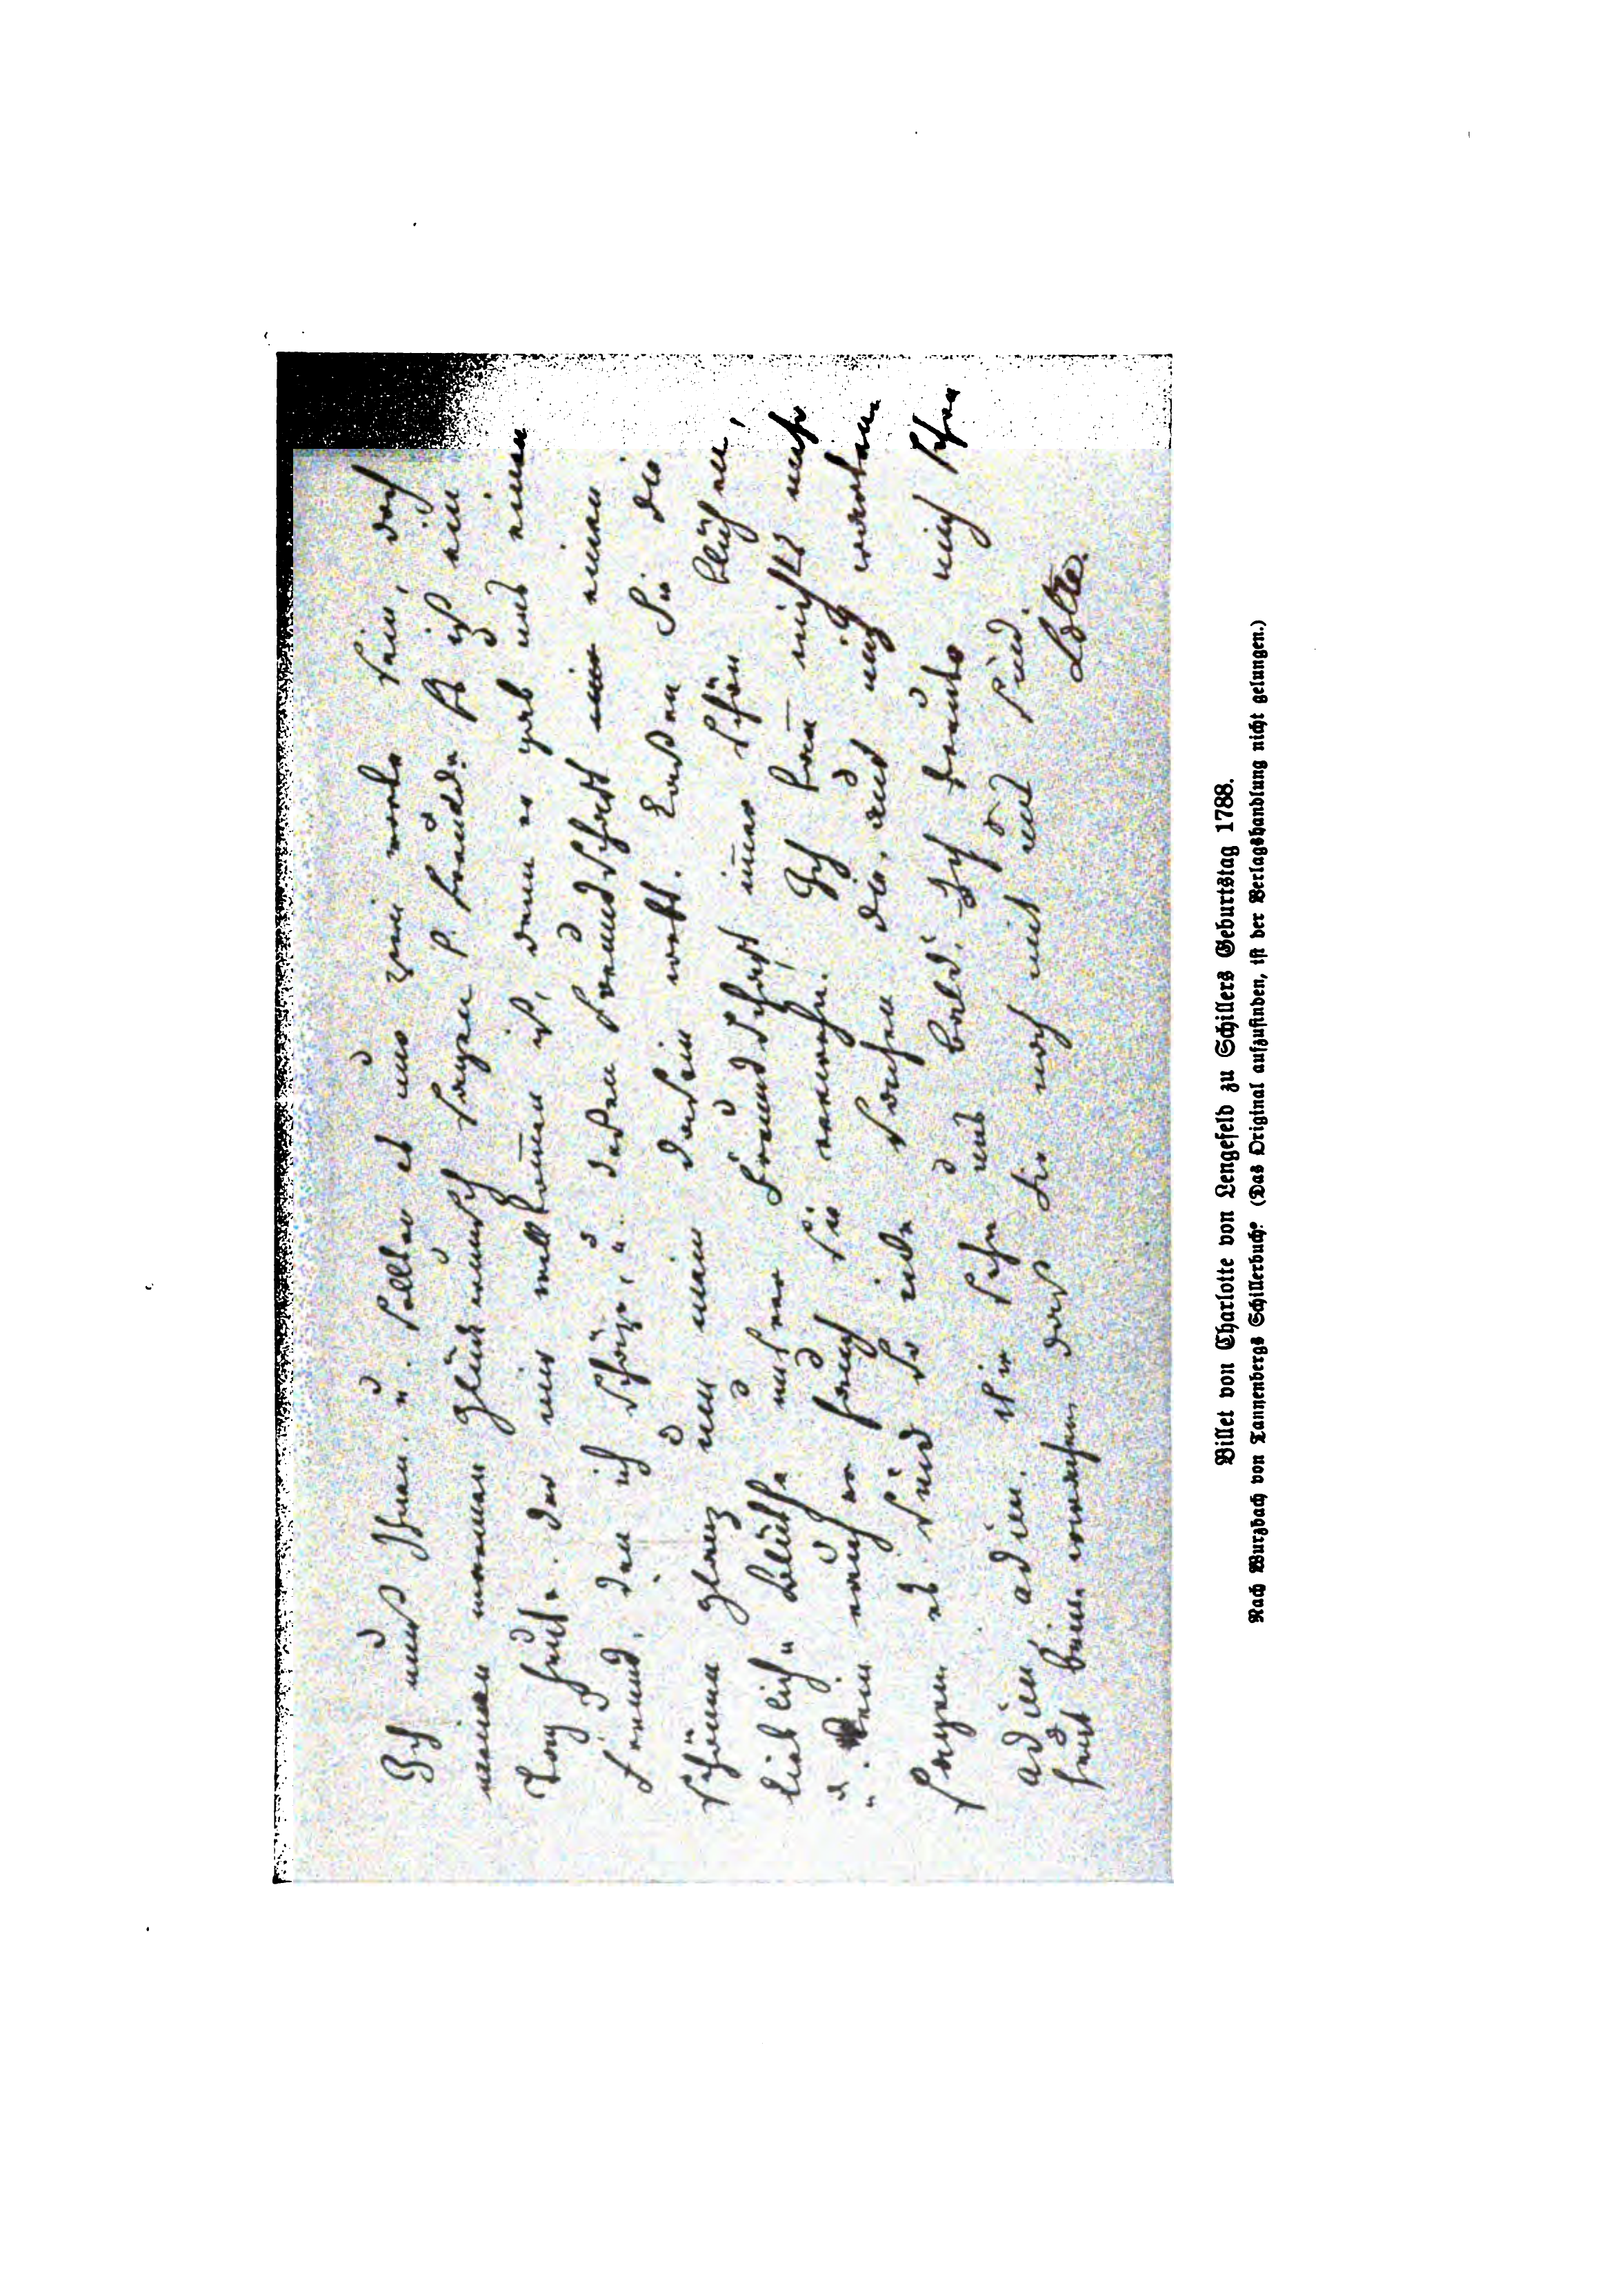 Ich muß Ihnen, u. sollten es nur zwei worte sein, doch
meinen warmen Glückwunsch sagen p. freudde. Es ist ein
Tag heute. der mir willkommen ist, denn er gab uns einen
Freund, den ich schäze, u. deßen Freundschaft mir einen
schönen glanz um mein Dasein webt. Laßen Sie die
liebliche Blüthe unsrer Freundschaft immer schön blühen,
u. kein rauher hauch sie verwehn. Ich kan nichts mehr
sagen es sind so viele Sachen da, auch mich warten
adieu adieu. wir sehn uns bald. Ich freute mich sehr
heut beim erwachen daß Sie noch mit uns sind
Lotte.
Billet von Charlotte von Lengefeld zu Schillers Geburtstag 1788.
Nach Wurzbach von Tannenbergs Schillerbuch? (Das Original aufzufinden, ist der Verlagshandlung nicht gelungen.)